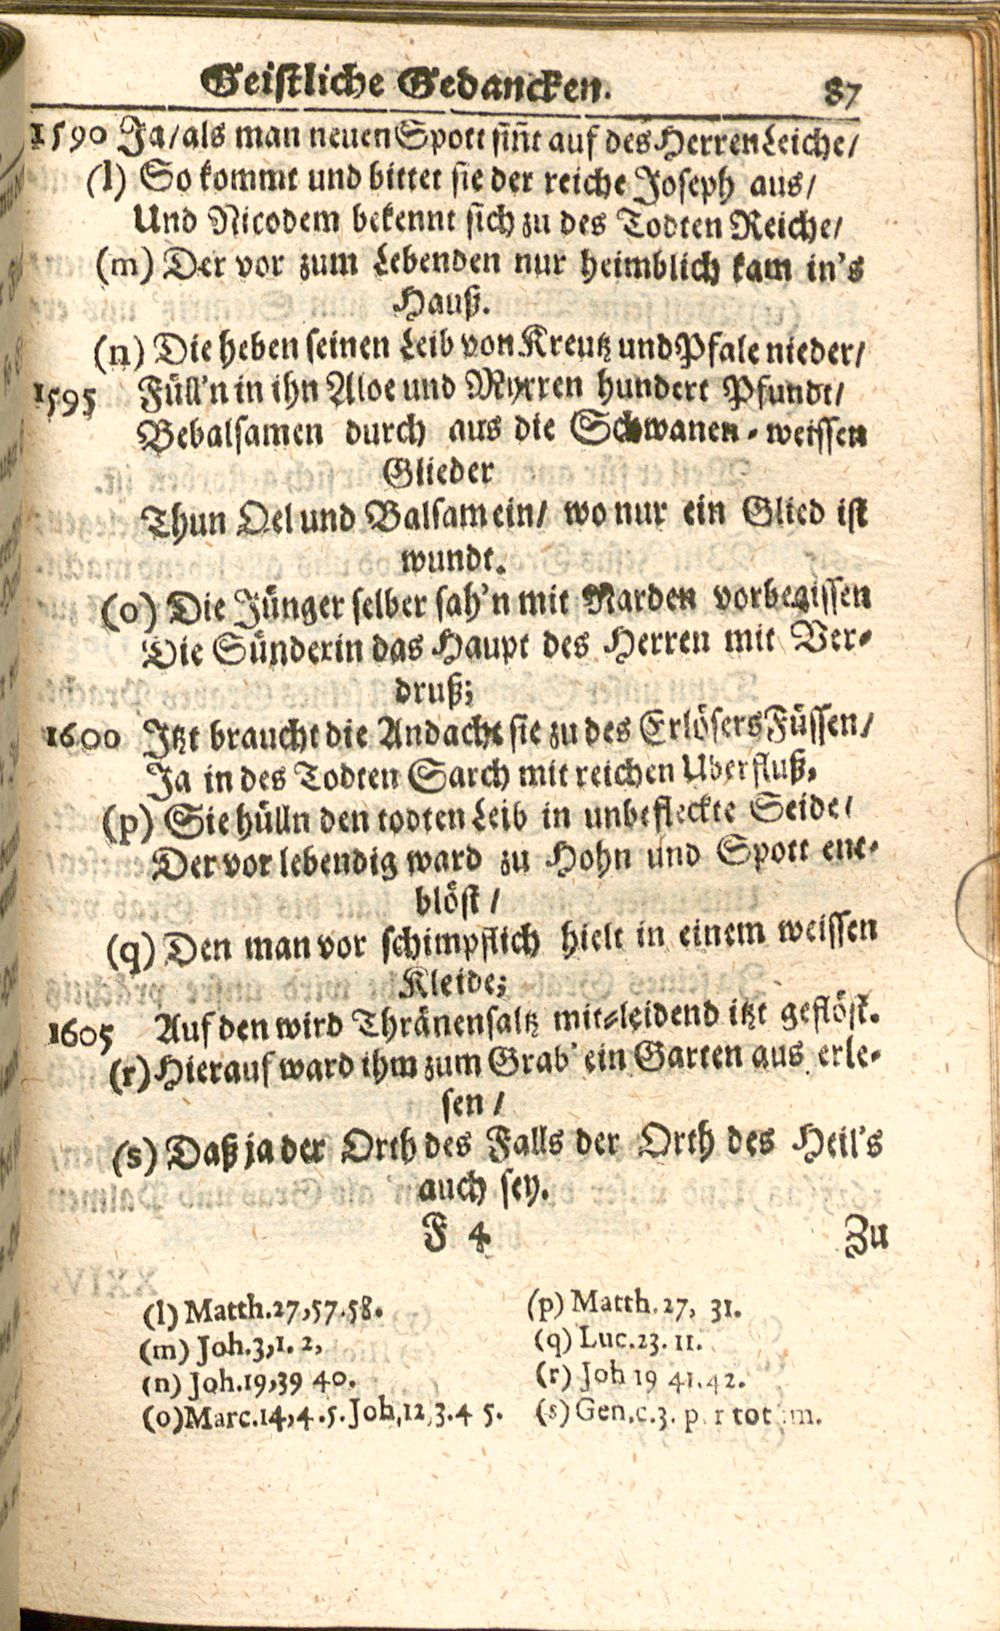 Geistliche Gedancken. 87
1590 Ja/ als man neuen Spott siñt auf des Herren Leiche/
(l) So kommt und bittet sie der reiche Joseph aus/
Und Nicodem bekennt sich zu des Todten Reiche/
(m) Der vor zum Lebenden nur heimblich kam in's
Hauß.
(n) Die heben seinen Leib von Kreutz und Pfale nieder/
1595 Füll'n in ihn Aloe und Myrren hundert Pfundt/
Bebalsamen durch aus die Schwanen-weissen
Glieder
Thun Oel und Balsam ein/ wo nur ein Glied ist
wundt.
(o) Die Jünger selber sah'n mit Narden vorbegissen
Die Sünderin das Haupt des Herren mit Ver-
druß;
1600 Jtzt braucht die Andacht sie zu des Erlösers Füssen/
Ja in des Todten Sarch mit reichen Uberfluß.
(p) Sie hülln den todten Leib in unbefleckte Seide/
Der vor lebendig ward zu Hohn und Spott ent-
blöst /
(q) Den man vor schimpflich hielt in einem weissen
Kleide;
1605 Auf den wird Thränensaltz mit-leidend itzt geflöst.
(r) Hierauf ward ihm zum Grab' ein Garten aus erle-
sen /
(s) Daß ja der Orth des Falls der Orth des Heil's
auch sey.
F 4 Zu
(l) Matth.27,57.58.
(m) Joh.3,1. 2,
(n) Joh.19,39 40.
(o) Marc.14,4.5. Joh,12,3.4 5.
(p) Matth. 27, 31.
(q) Luc.23. 11.
(r) Joh 19 41.42.
(s) Gen.c.3. p r tot m.